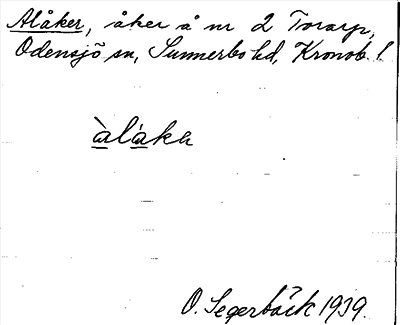 Alåker, åker å nr 2 Torarp,
Odensjö sn, Sunnerbo hd, Kronob. l.
àlåka
O. Segerbäck 1939.